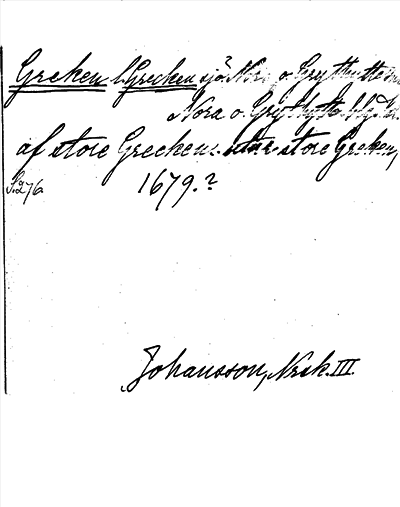 Greken l. Grecken sjö Nora o. Grythytte
Nora o. Grythytte
af store Grecken: store Greken,
S. 276 1679.?
Johansson, Nrik. III.